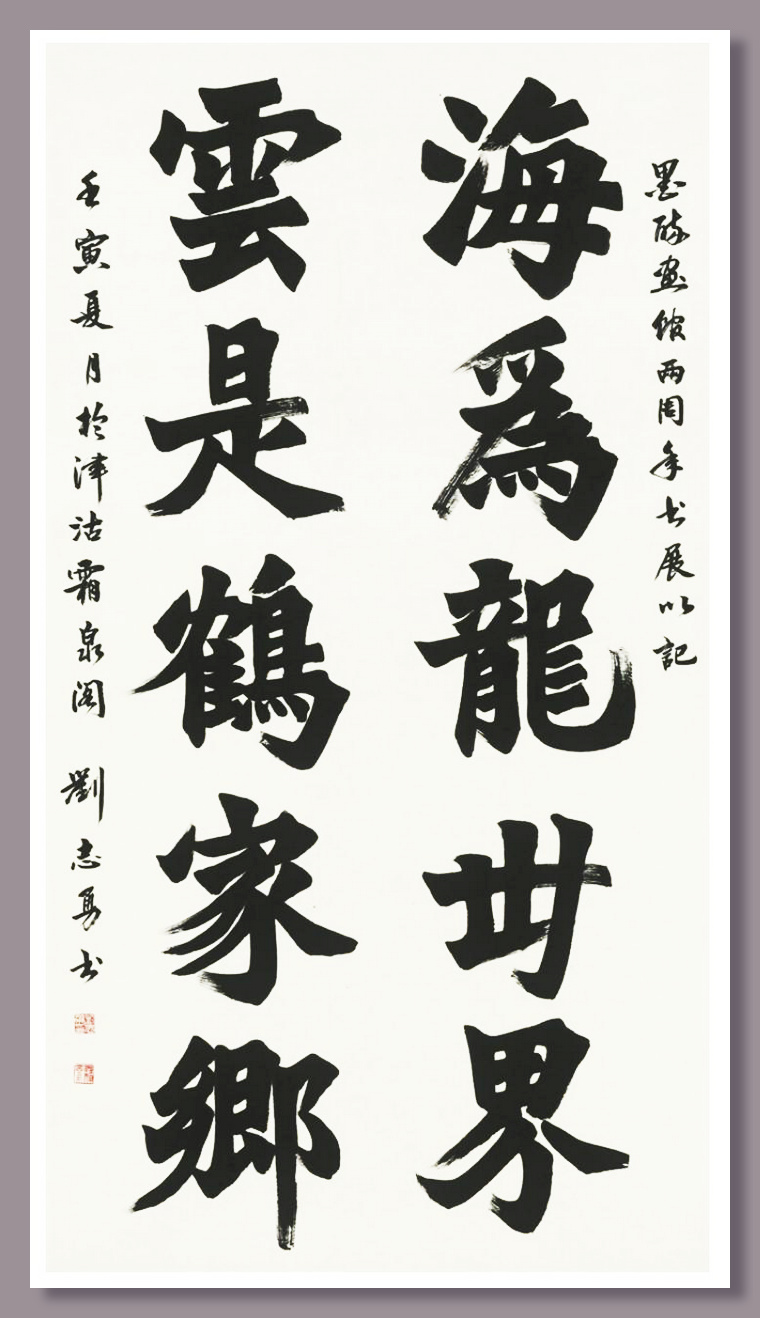 墨畫館两周年书展以記
海為龍世界
雲是鶴家鄉
壬寅夏月於津沽霜泉阁 劉志勇书